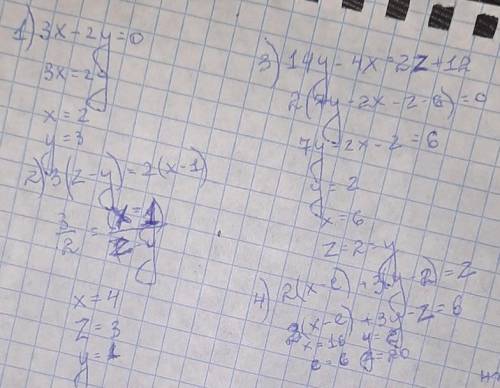 1) 3x - 2y = 0
3x = 2y
x = 2
y = 3
2) 3(z - y) = 2(x - 1)
3/2 = (x - 1)/(z - y)
x = 4
z = 3
y = 1
3) 14y - 4x = 2z + 12
2(7y - 2x - z - 6) = 0
7y - 2x - z = 6
y = 2
x = 6
z = 2 = y
4) 2(x - 2) + 3(y - 2) = z